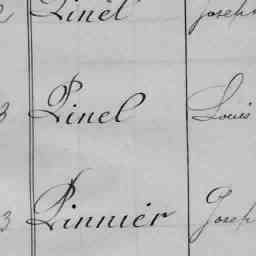 Pinel Joseph
3 Pinel Louis
3 Pinnier Joseph